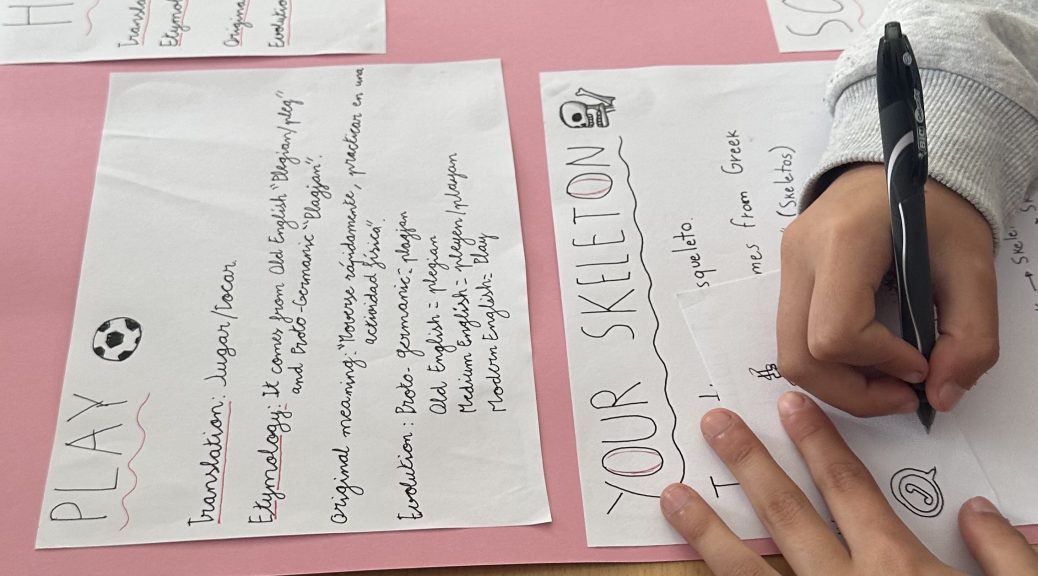 H
Transla
Etymol
Origina
Evolutio
PLAY
Translation: Jugar/tocar
Etymology: It comes from Old English "Plegian/pleg"
and Proto-Germanic "Plagjan".
Original meaning: "Moverse rápidamente, practicar en una
actividad física".
Evolution: Proto-germanic = plagjan
Old English = plegian
Medium English = pleyen/playan
Modern English = Play
SO
YOUR SKELETON
T squeleto.
mes from Greek
(Skeletos)
→ Skele
BIC